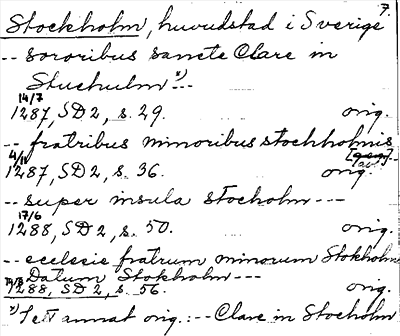 7.
Stockholm, huvudstad i Sverige
-- sororibus sancte Clare in
Stuchulm x) --
14/7
1287, SD 2, s. 29. orig.
-- fratribus minoribus stochholmis
4/11 [avs]--
1287, SD 2, s. 36. orig.
-- super insula stocholm ---
17/6
1288, SD 2, s. 50. orig.
-- ecclesie fratrum minorum Stokholm
Datum Stokholm ---
1288, SD 2, s. 56. orig.
x) I ett annat orig.: -- Clare in Stocholm